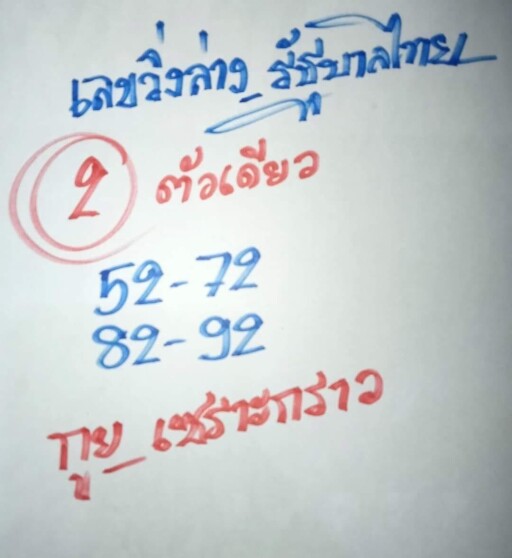 เลขวิ่งล่าง รัฐบาลไทย
2 ตัวเดียว
52-72
82-92
กูย_เซราะกราว